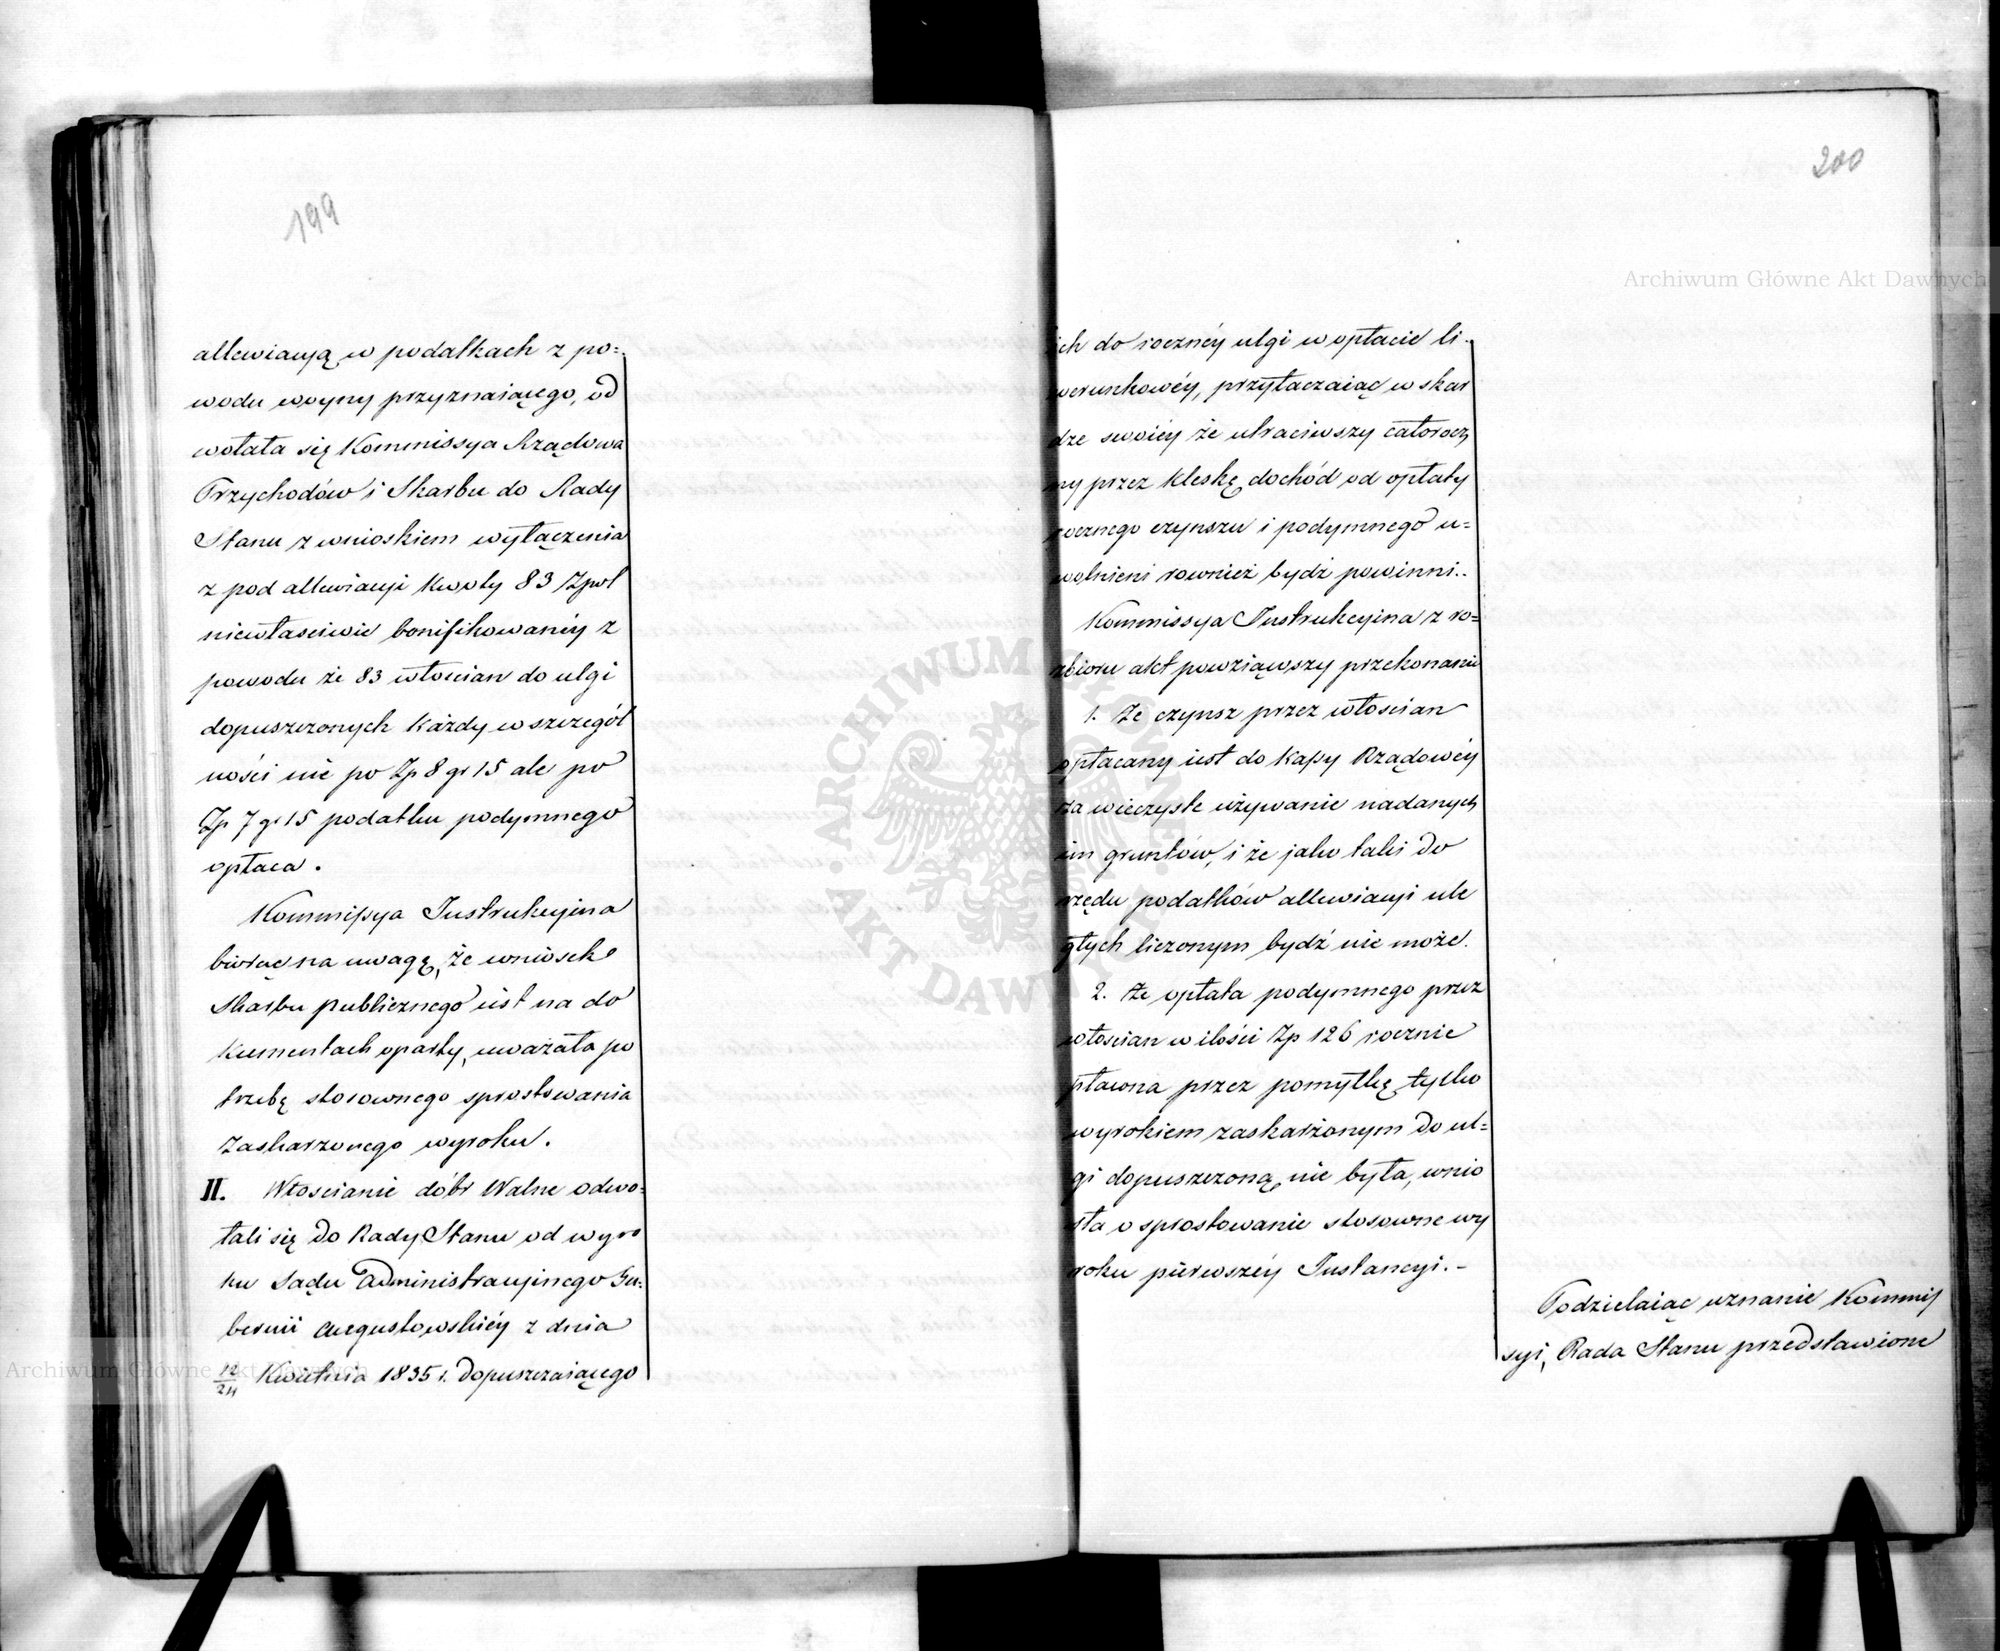 199
allewiacyą w podatkach z po=
wodu woyny przyznaiącego, od
wołała się Kommissya Rządowa
Przychodów i Skarbu do Rady
Stanu z wnioskiem wyłączenia
z pod allewiacyi kwoty 83 Zpol
niewłaściwie bonifikowanéy z
powodu że 83 włościan do ulgi
dopuszczonych każdy w szczegól
ności nie po Zp 8 gr 15 ale po
Zp 7 gr 15 podatku podymnego
opłaca.
Kommissya Instrukcyina
biorąc na uwagę, że wniosek
Skarbu publicznego iest na do
kumentach oparty, uważała po
trzebę stosownego sprostowania
zaskarzonego wyroku.
II. Włościanie dóbr Walne odwo-
łali się do Rady Stanu od wyro
ku Sądu Administracyinego Gu-
bernii Augustowskiéy z dnia
12/24 Kwietnia 1835 r. dopuszczaiącego
200
ich do rocznéy ulgi w opłacie li-
werunkowéy, przytaczaiąc w skar
dze swoiéy że utraciwszy całorocz
ny przez klęskę dochód od opłaty
rocznego czynszu i podymnego u=
wolnieni rownież bydź powinni..
Kommissya Instrukcyina z ro=
zbioru akt powziąwszy przekonanie
1. Że czynsz przez włościan
opłacany iest do Kassy Rządowéy
za wieczyste używanie nadanych
im gruntów, i że jako taki do
rzędu podatków allewiacyi ule
głych liczonym bydź nie może.
2. Że opłata podymnego przez
włościan w ilości Zp 126 rocznie
opłacona przez pomyłkę tylko
wyrokiem zaskarżonym do ul=
gi dopuszczoną nie była, wnio
sła o sprostowanie stosowne wy
roku pierwszéy Instancyi.-
Podzielaiąc uznanie Kommis
syi, Rada Stanu przedstawione
Archiwum Główne Akt Dawnych
Archiwum Główne Akt Dawnych
ARCHIWUM GŁÓWNE
AKT DAWNYCH